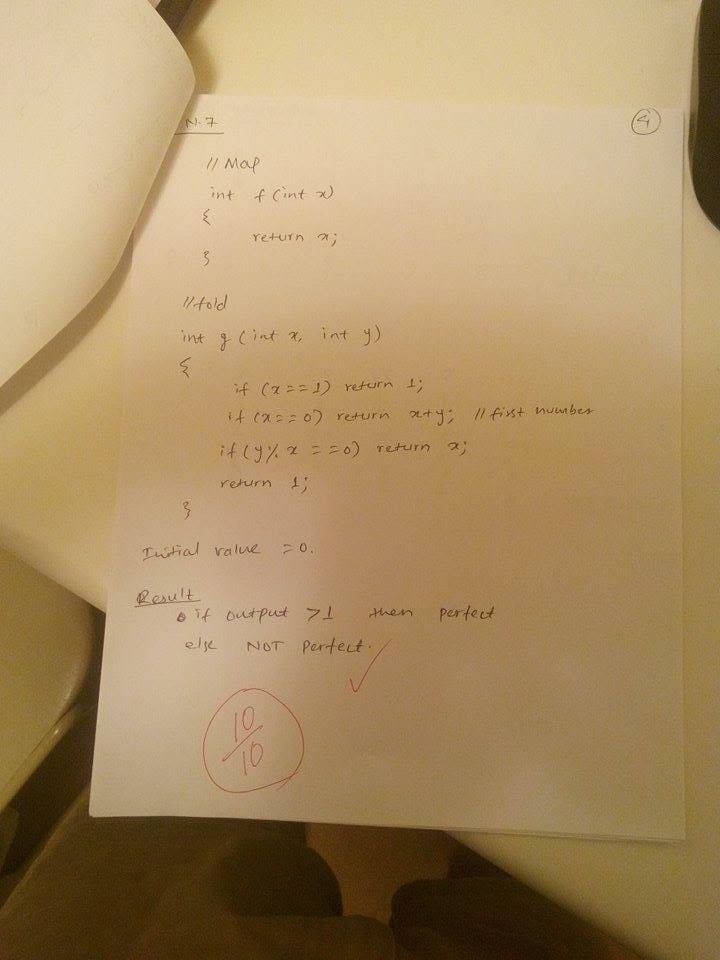 N.7
4
// Map
int f (int x)
{
return x;
}
// fold
int g (int x, int y)
{
if (x==1) return 1;
if (x==0) return x+y; // first number
if (y% x ==0) return x;
return 1;
}
Initial value =0.
Result
if output >1 then perfect
else NOT perfect.
10
10